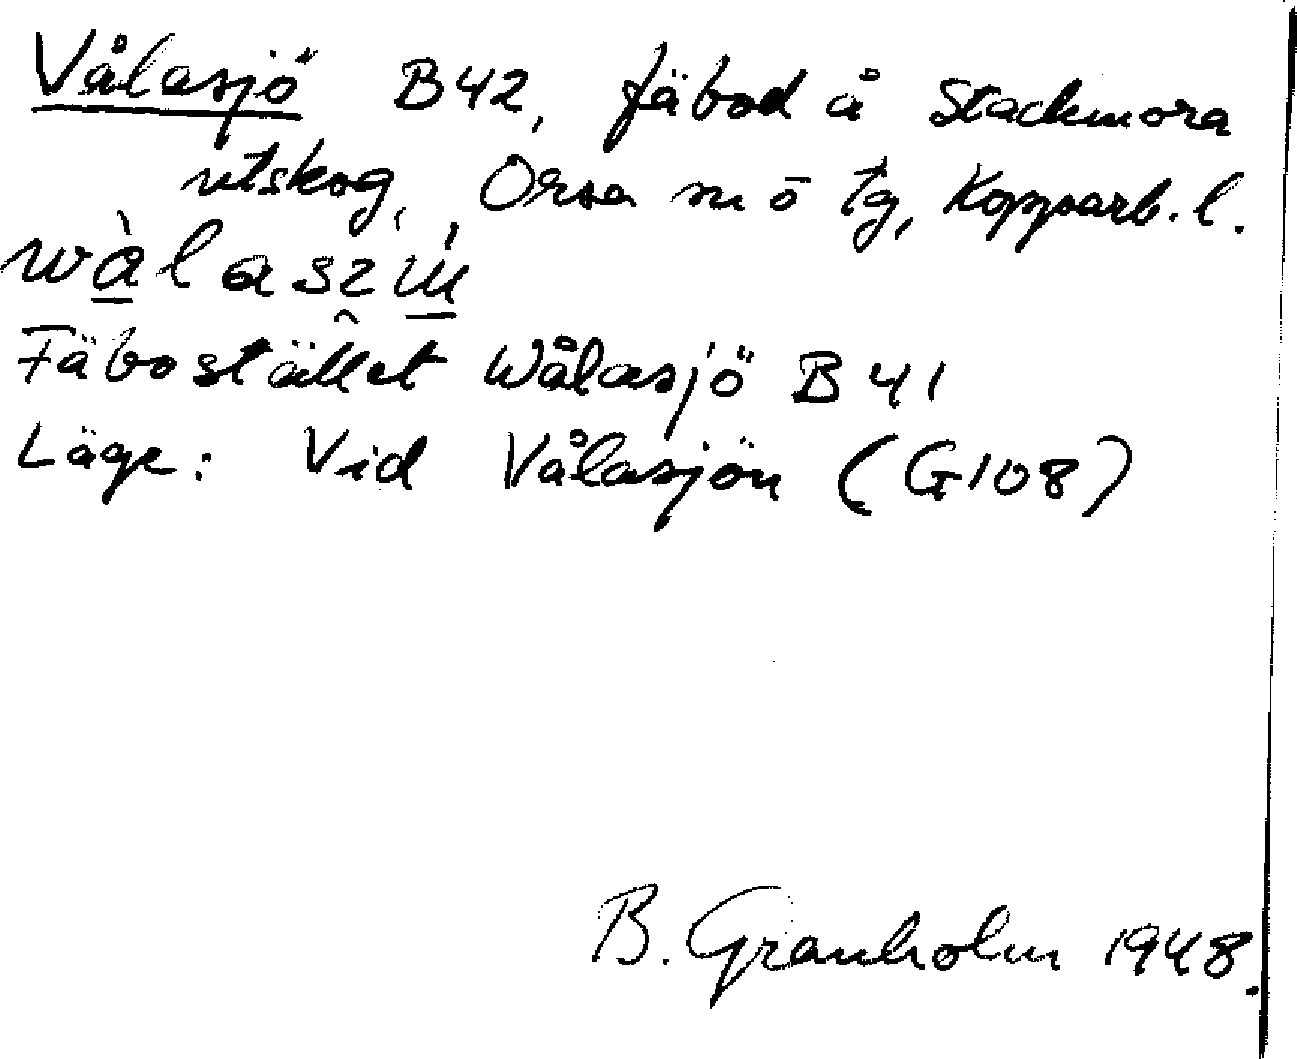 Vålasjö B42, fäbod å Stackmora
utskog, Orsa sn ō tg, Kopparb. l.
Fäbostället Wålasjö B 41
Läge: Vid Vålasjön (G108)
B. Granholm 1948.